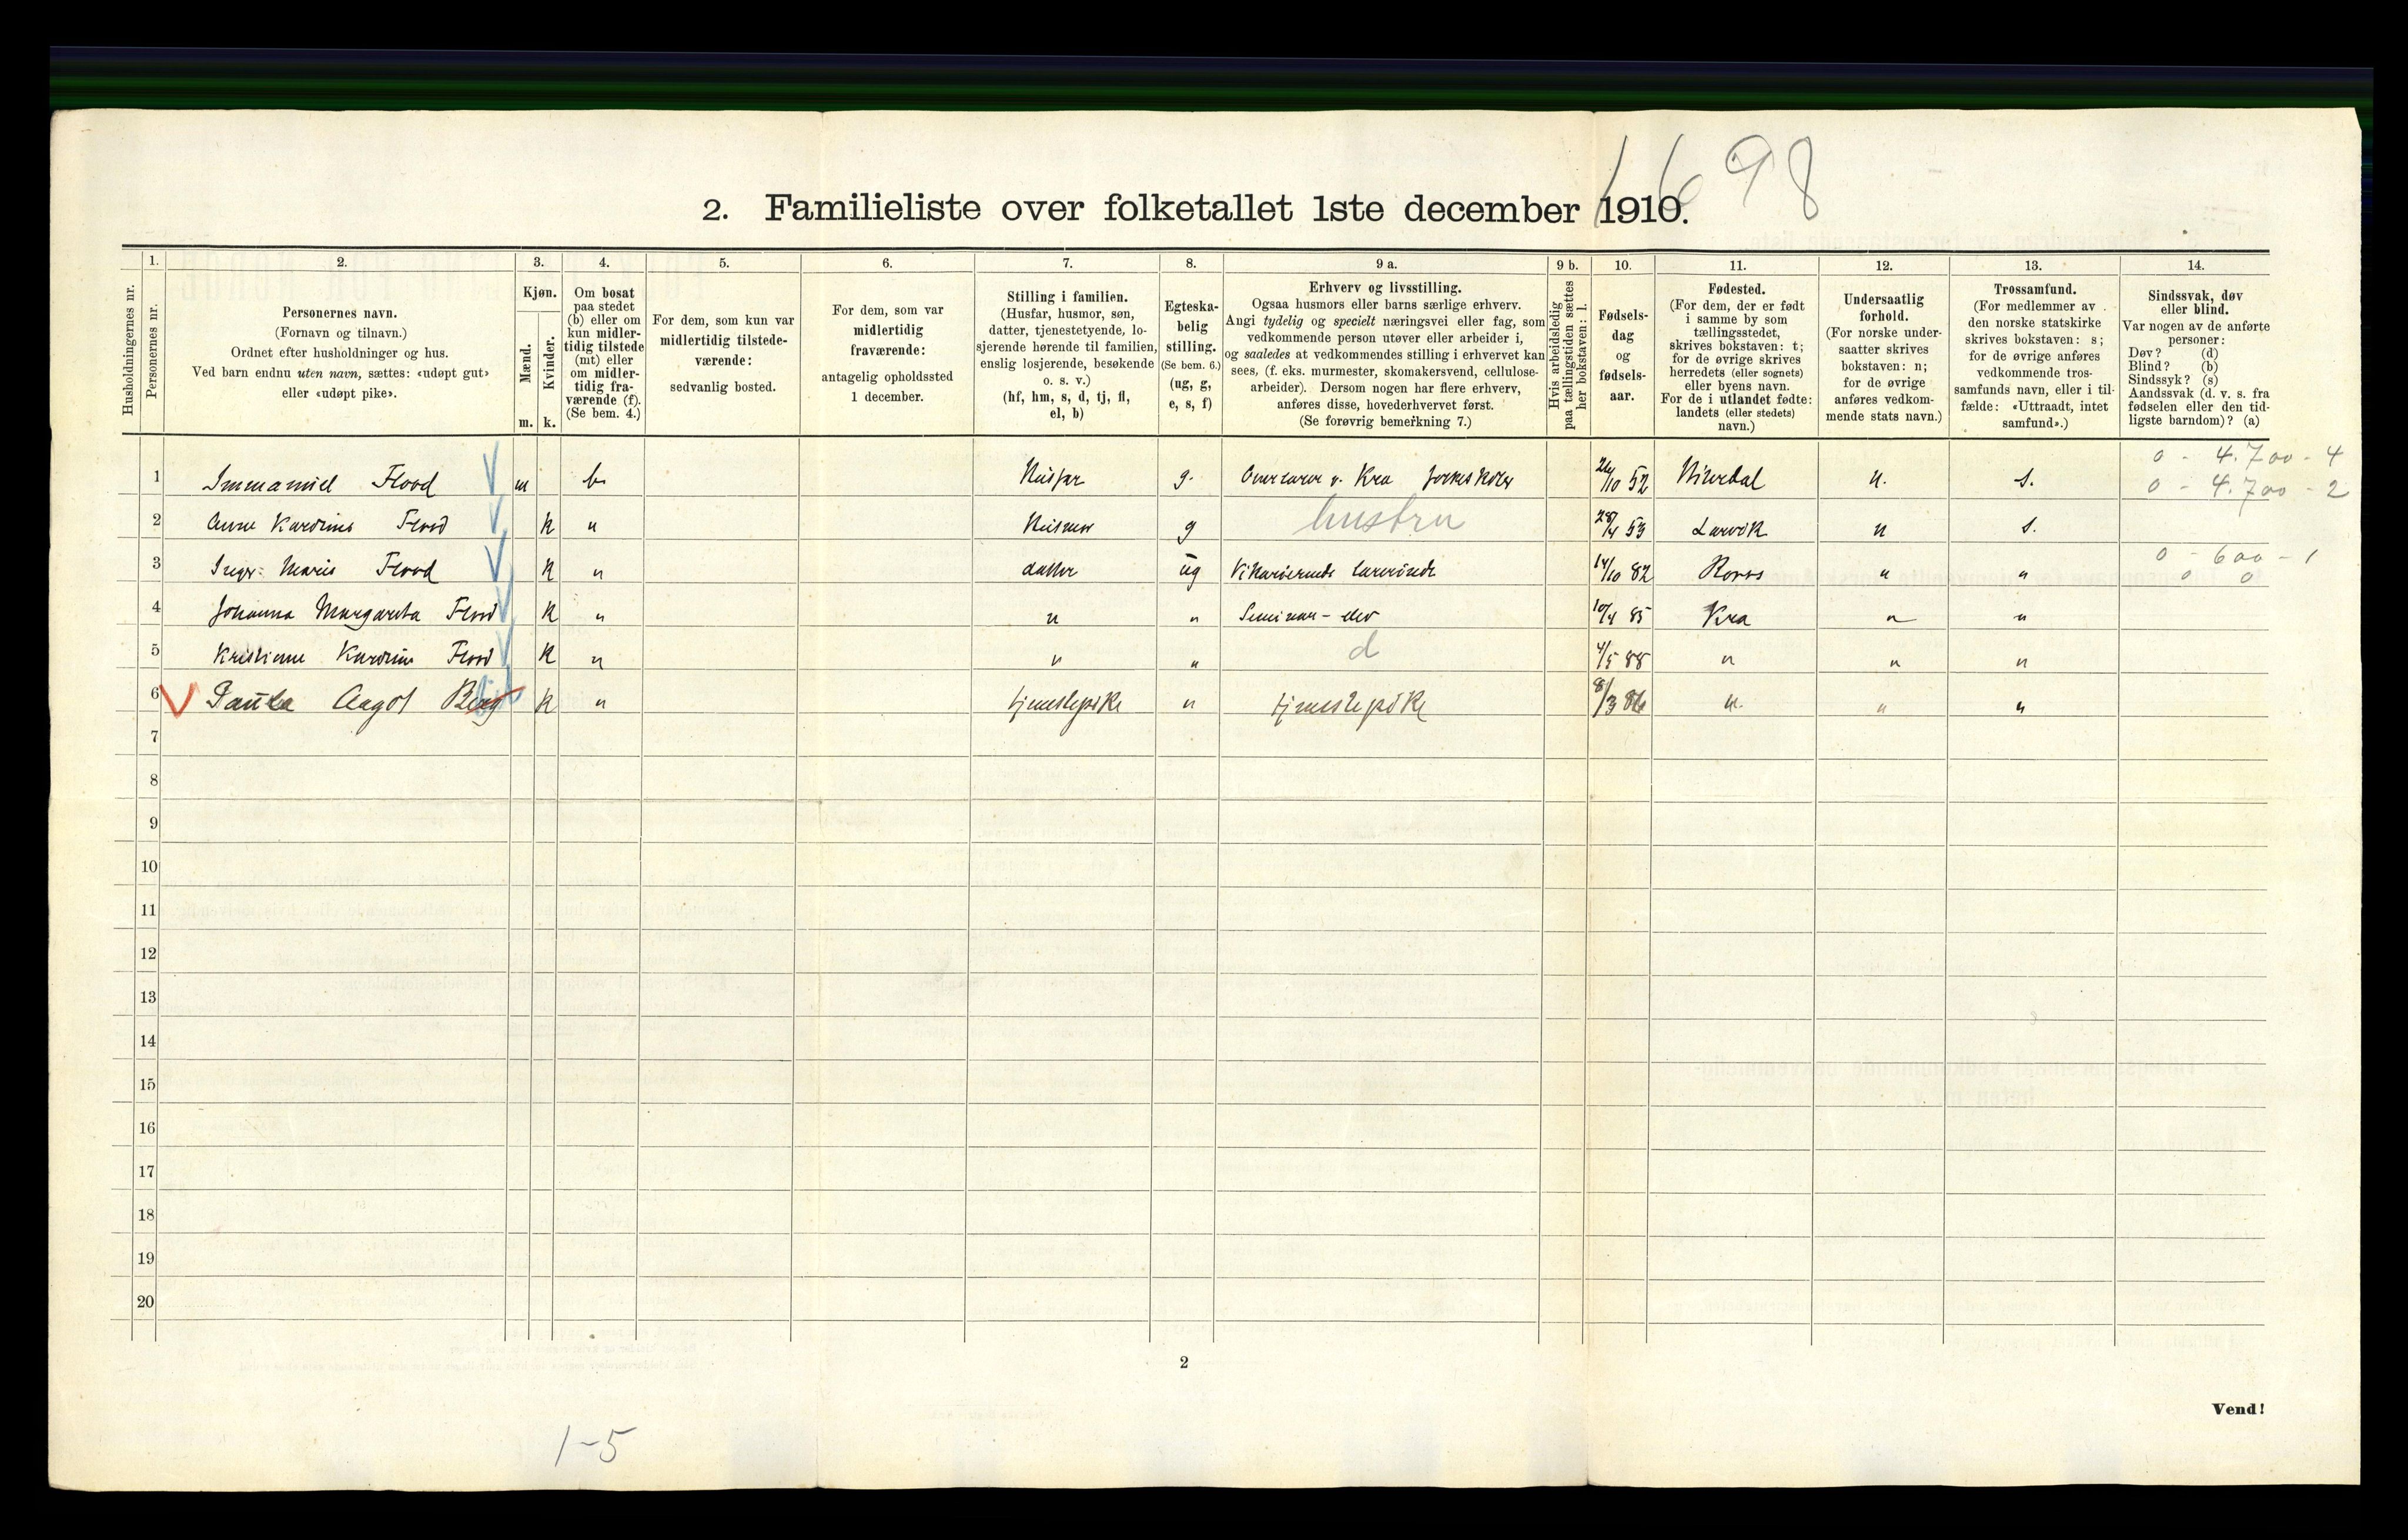 1698
2. Familieliste over folketallet 1ste december 1910.
Husholdningernes nr.
1. Personernes nr.
2. Personernes navn.
(Fornavn og tilnavn.)
Ordnet efter husholdninger og hus.
Ved barn endnu uten navn, sættes: «udøpt gut»
eller «udøpt pike».
3. Kjøn.
Mænd. Kvinder.
m. k.
4. Om bosat
paa stedet
(b) eller om
kun midler-
tidig tilstede
(mt) eller
om midler-
tidig fra-
værende (f).
(Se bem. 4.)
5. For dem, som kun var
midlertidig tilstede-
værende:
sedvanlig bosted.
6. For dem, som var
midlertidig
fraværende:
antagelig opholdssted
1 december.
7. Stilling i familien.
(Husfar, husmor, søn,
datter, tjenestetyende, lo-
sjerende hørende til familien,
enslig losjerende, besøkende
o. s. v.)
(hf, hm, s, d, tj, fl,
el, b)
8. Egteska-
belig
stilling.
(Se bem. 6.)
(ug, g,
e, s, f)
9 a. Erhverv og livsstilling.
Ogsaa husmors eller barns særlige erhverv.
Angi tydelig og specielt næringsvei eller fag, som
vedkommende person utøver eller arbeider i,
og saaledes at vedkommendes stilling i erhvervet kan
sees, (f. eks. murmester, skomakersvend, cellulose-
arbeider). Dersom nogen har flere erhverv,
anføres disse, hovederhvervet først.
(Se forøvrig bemerkning 7.)
9 b. Hvis arbeidsledig
paa tællingstiden sættes
her bokstaven: l.
10. Fødsels-
dag
og
fødsels-
aar.
11. Fødested.
(For dem, der er født
i samme by som
tællingsstedet,
skrives bokstaven: t;
for de øvrige skrives
herredets (eller sognets)
eller byens navn.
For de i utlandet fødte:
landets (eller stedets)
navn.)
12. Undersaatlig
forhold.
(For norske under-
saatter skrives
bokstaven: n;
for de øvrige
anføres vedkom-
mende stats navn.)
13. Trossamfund.
(For medlemmer av
den norske statskirke
skrives bokstaven: s;
for de øvrige anføres
vedkommende tros-
samfunds navn, eller i til-
fælde: «Uttraadt, intet
samfund».)
14. Sindssvak, døv
eller blind.
Var nogen av de anførte
personer:
Døv? (d)
Blind? (b)
Sindssyk? (s)
Aandssvak (d. v. s. fra
fødselen eller den tid-
ligste barndom)? (a)
0 - 4.700 - 4
1 Immanuel Flood m b Husfar g. Overlærer v. Kra folkeskoler 26/10 52 n. s. 0 - 4.700 - 2
2 Anne Kardine Flood k " Husmor g hustru 28/4 53 Larvik n s.
3 Inger Marie Flood k " datter ug Vikarierende lærerinde 14/10 82 Roros " " 0 - 600 - 1
0 0
4 Johanna Margareta Flood k " " " Seminar-elev 10/4 85 Kra " "
5 Kristiane Kardine Flood k " " " d 4/5 88 " " "
6 Paula Aagot Berg k " tjenestepike " tjenestepike 8/3 86 " " "
7
8
9
10
11
12
13
14
15
16
17
18
19
20
2
Vend!
1-5